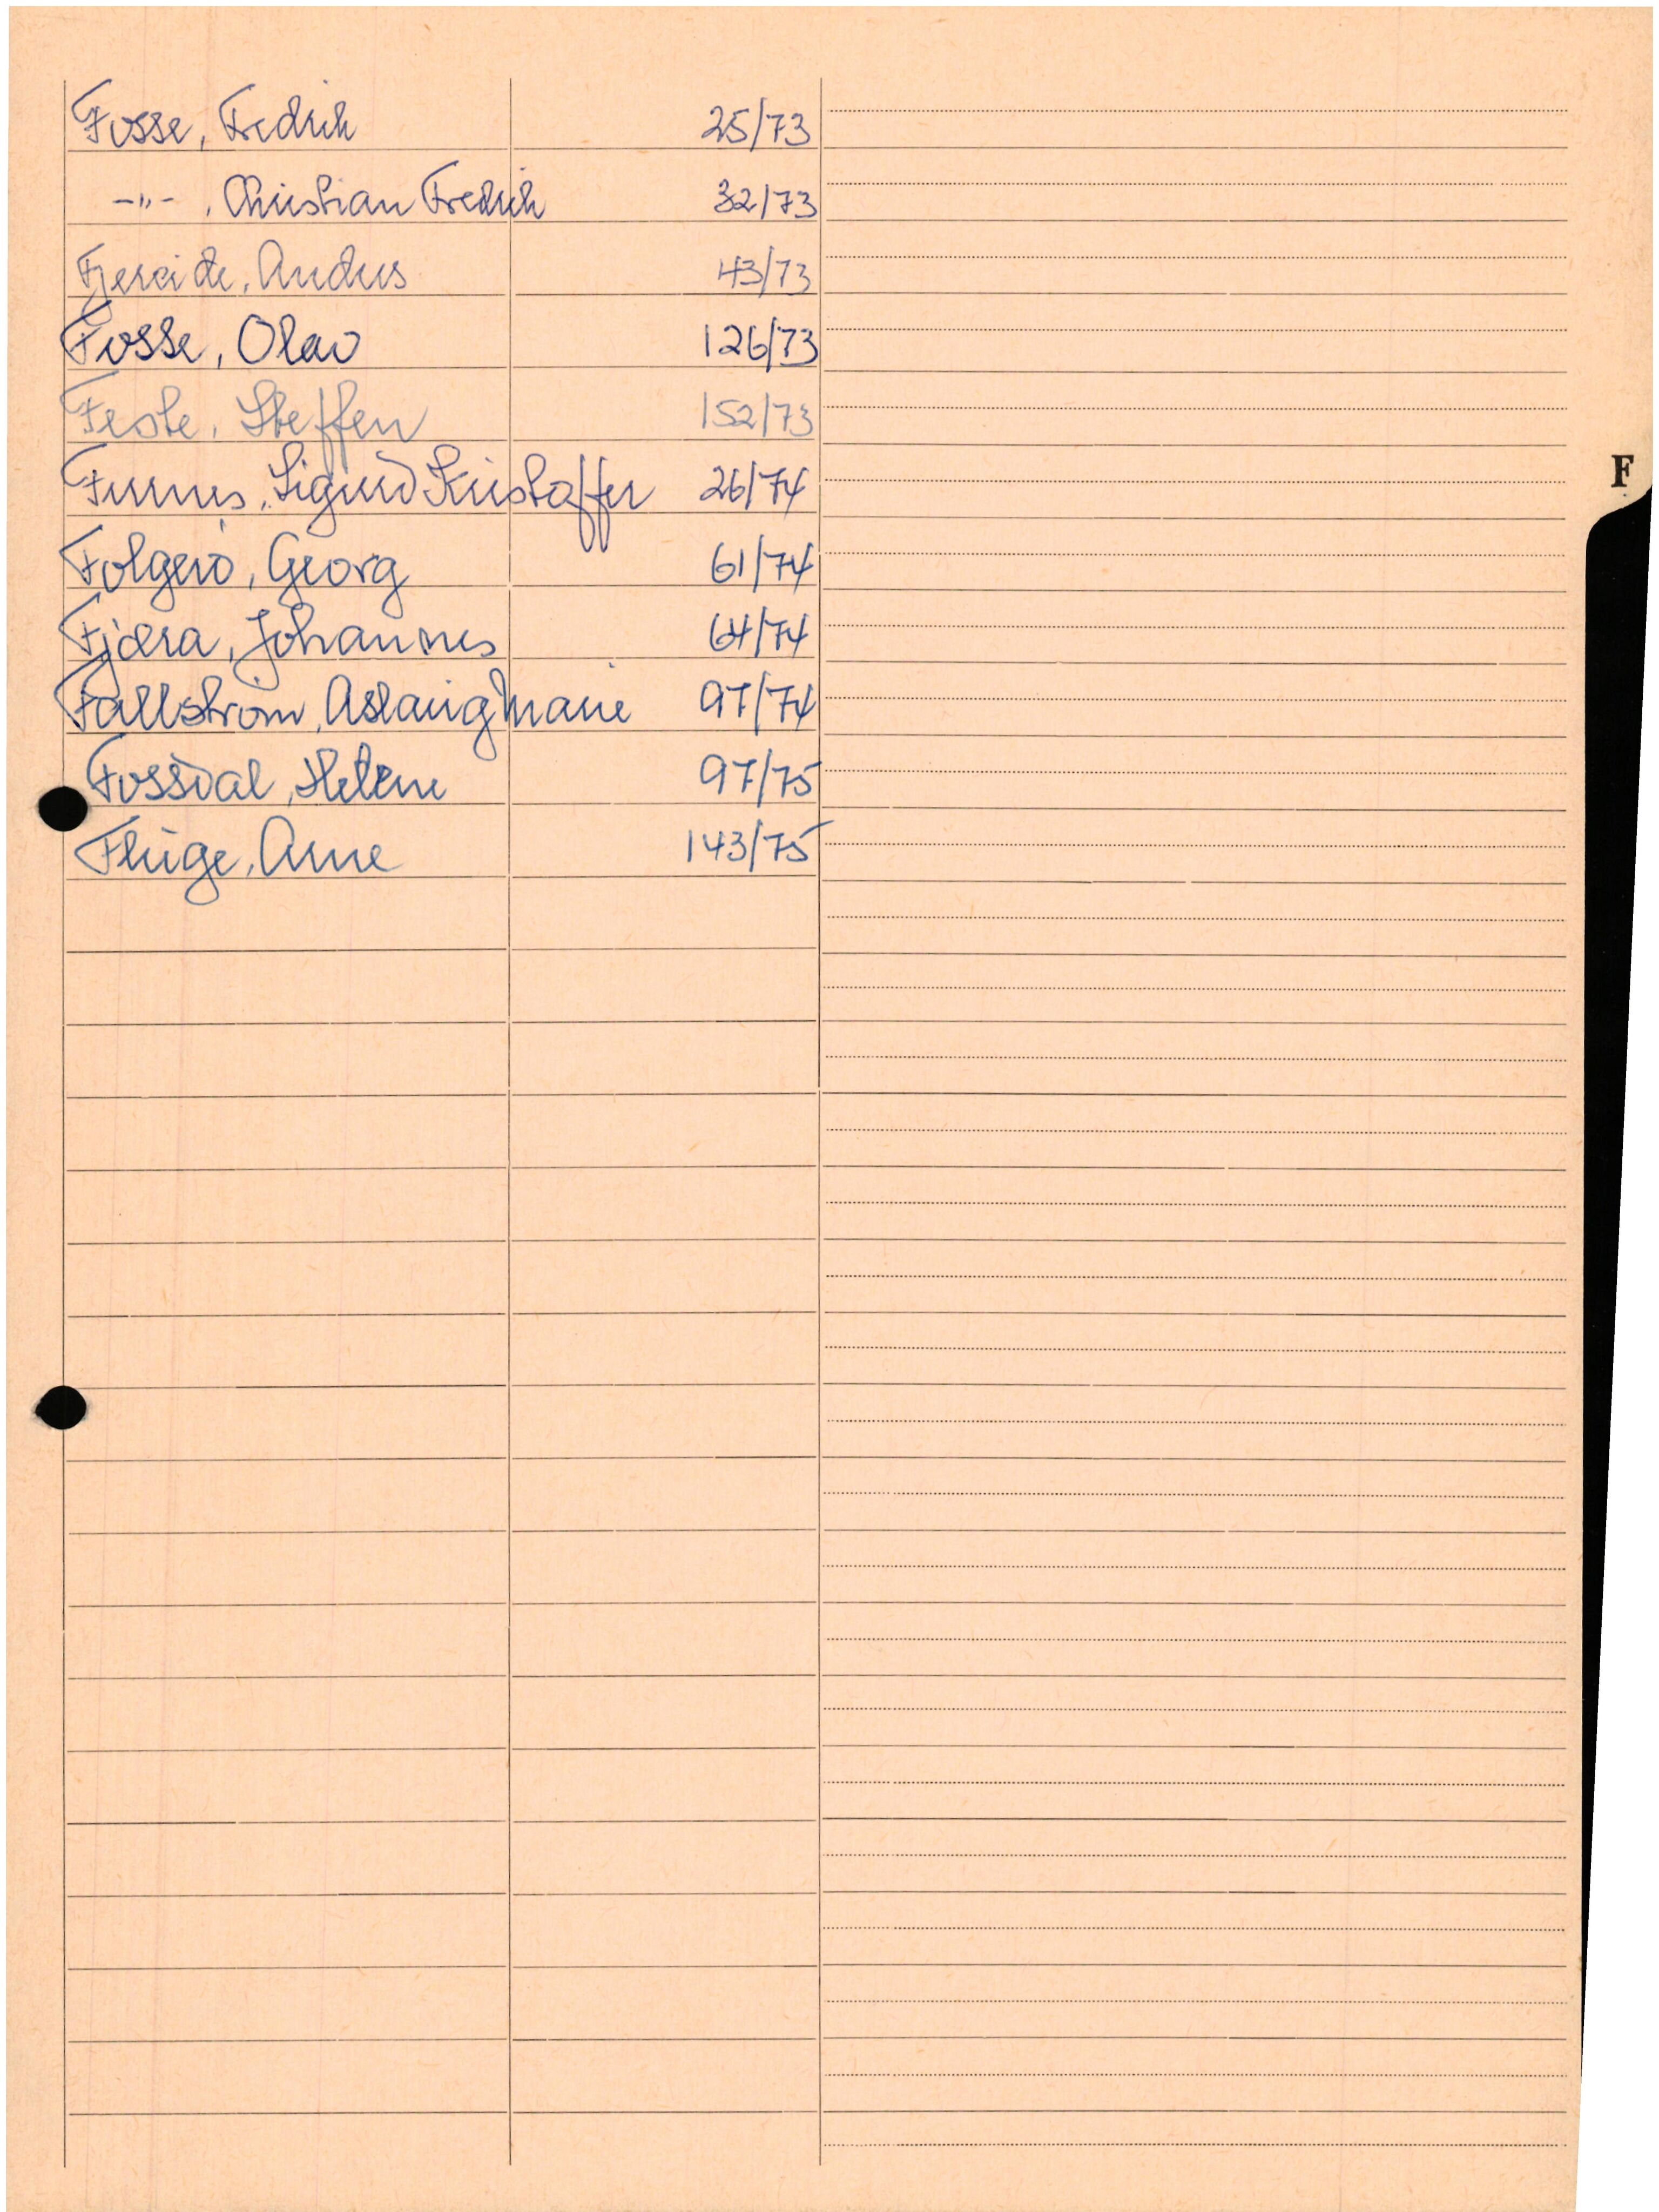 Fosse, Fredrik 25/73
-"- , Christian Fredrik 32/73
Fjereide, Anders 43/73
Fosse, Olav 126/73
Feste, Steffen 152/73
Furnes, Sigurd Kristoffer 26/74
F
Folgerö, Georg 61/74
Fjæra, Johannes 64/74
Fallström, Aslaug Marie 97/74
Fossdal, Helene 97/75
Flüge, Arne 143/75